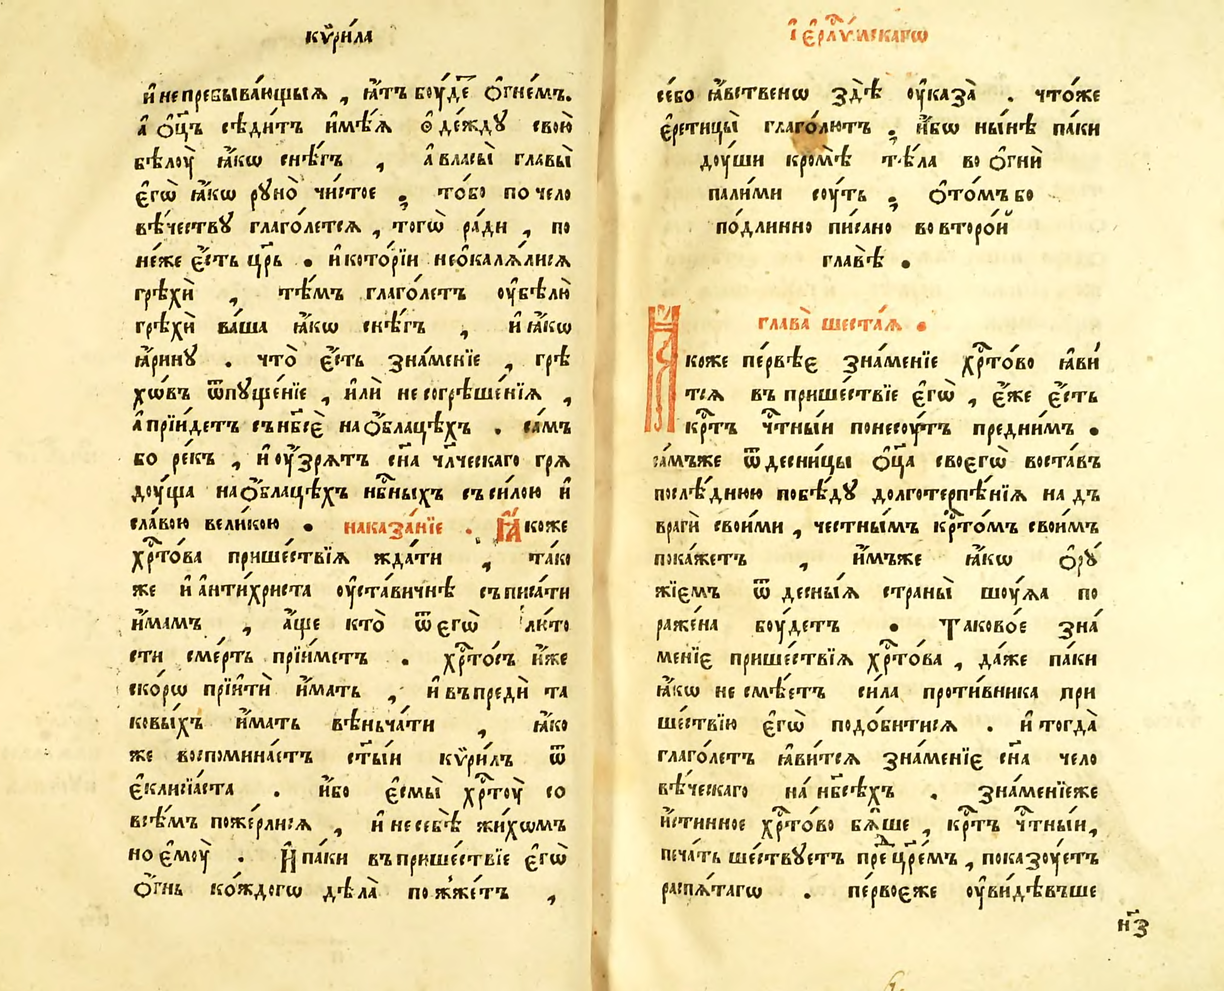 кѷри́ла
и҆ непребыва́ющыѧ , ꙗ҆́тъ боу́де ѻ҆гне́мъ.
а҆ ѻ҆ц҃ъ сѣди́тъ и҆мѣ́ѧ ѻ҆де́ждꙋ свою̀
бѣлоу̀ ꙗ҆́кѡ снѣ́гъ , а҆ власы̀ главы̀
є҆гѡ̀ ꙗ҆́кѡ рꙋно̀ чи́стое , то́бо по чело
вѣ́чествꙋ глаго́летсѧ , тогѡ̀ ра́ди , по
не́же є҆́сть цр҃ь . и҆ кото́рїи неѻ҆калѧ́лисѧ
грѣхѝ , тѣ́мъ глаго́летъ оу҆бѣлю̀
грѣхѝ ва́ша ꙗ҆́кѡ снѣ́гъ , и҆ ꙗ҆́кѡ
ꙗ҆́ринꙋ . что̀ є҆́сть зна́менїе , грѣ
хѡ́въ ѿпꙋще́нїе , и҆лѝ несогрѣше́нїѧ ,
а҆ прїи́детъ съ нб҃сѐ на ѻ҆́блацѣхъ . са́мъ
бо ре́къ , и҆ оу҆́зрѧтъ сн҃а чл҃ческаго грѧ
доу́ща на ѻ҆́блацѣхъ нб҃ныхъ съ си́лою и҆
сла́вою вели́кою . наказа́нїе . Ꙗ҆́коже
хрⷭ҇то́ва прише́ствїѧ жда́ти , та́ко
же и҆ а҆нти́христа оу҆ста́вичнѣ съписа́ти
и҆́мамъ , а҆́ще кто̀ ѿ є҆гѡ̀ лю́то
сти сме́рть прїи́метъ . хрⷭ҇то́съ и҆́же
ско́рѡ прїитѝ и҆́мать , и҆ въпредѝ та
ковы́хъ и҆́мать вѣньча́ти , ꙗ҆́ко
же воспомина́етъ ст҃ы́и кѷри́лъ ѿ
є҆клисїа́ста . и҆́бо є҆смы̀ хрⷭ҇тоу̀ со
всѣ́мъ пожерли́сѧ , и҆ не себѣ̀ жи́хѡмъ
но є҆моу̀ . И҆ па́ки въ прише́ствїе є҆гѡ̀
ѻ҆́гнь ко́ждогѡ дѣла̀ пожже́тъ ,
і҆ерⷭ҇ли́мскагѡ
се́бо ꙗ҆́вственѡ здѣ̀ оу҆каза̀ . что́же
є҆ретицы̀ глаго́лютъ , и҆́бѡ ны́нѣ па́ки
доу́ши кромѣ̀ тѣ́ла во ѻ҆гнѝ
пали́ми соу́ть , ѻ҆ то́мъ бо
по́длинно пи́сано во второ́й
главѣ̀ .
глава̀ шеста́ѧ .
Ꙗкоже пе́рвѣе зна́менїе хрⷭ҇то́во ꙗ҆ви
тсѧ въ прише́ствїе є҆гѡ̀ , є҆́же є҆́сть
крⷭ҇тъ чⷭ҇тны́и понесоу́тъ пред ни́мъ .
са́мъже ѿ десни́цы ѻ҆ц҃а̀ своегѡ̀ воста́въ
послѣ́днюю побѣ́дꙋ долготерпѣ́нїѧ надъ
врагѝ свои́ми , че́стнымъ крⷭ҇то́мъ свои́мъ
пока́жетъ , и҆́мъже ꙗ҆́кѡ ѻ҆рꙋ́
жїемъ ѿ десны́ѧ страны̀ шоу́ѧа по
раже́на боу́детъ . Таково́е зна́
менїе прише́ствїѧ хрⷭ҇то́ва , да́же па́ки
ꙗ҆́кѡ не смѣ́етъ си́ла проти́вника при
ше́ствїю є҆гѡ̀ подо́битисѧ . и҆ тогда̀
глаго́летъ ꙗ҆ви́тсѧ зна́менїе сн҃а чело
вѣ́ческаго на нб҃сѣ́хъ . зна́менїеже
и҆́стинное хрⷭ҇то́во бѧ́ше , крⷭ҇тъ чⷭ҇тны́и,
печа́ть ше́ствꙋетъ преⷣ цр҃е́мъ , показоу́етъ
распѧ́тагѡ . пе́рвоеже оу҆ви́дѣвъше
н҃з